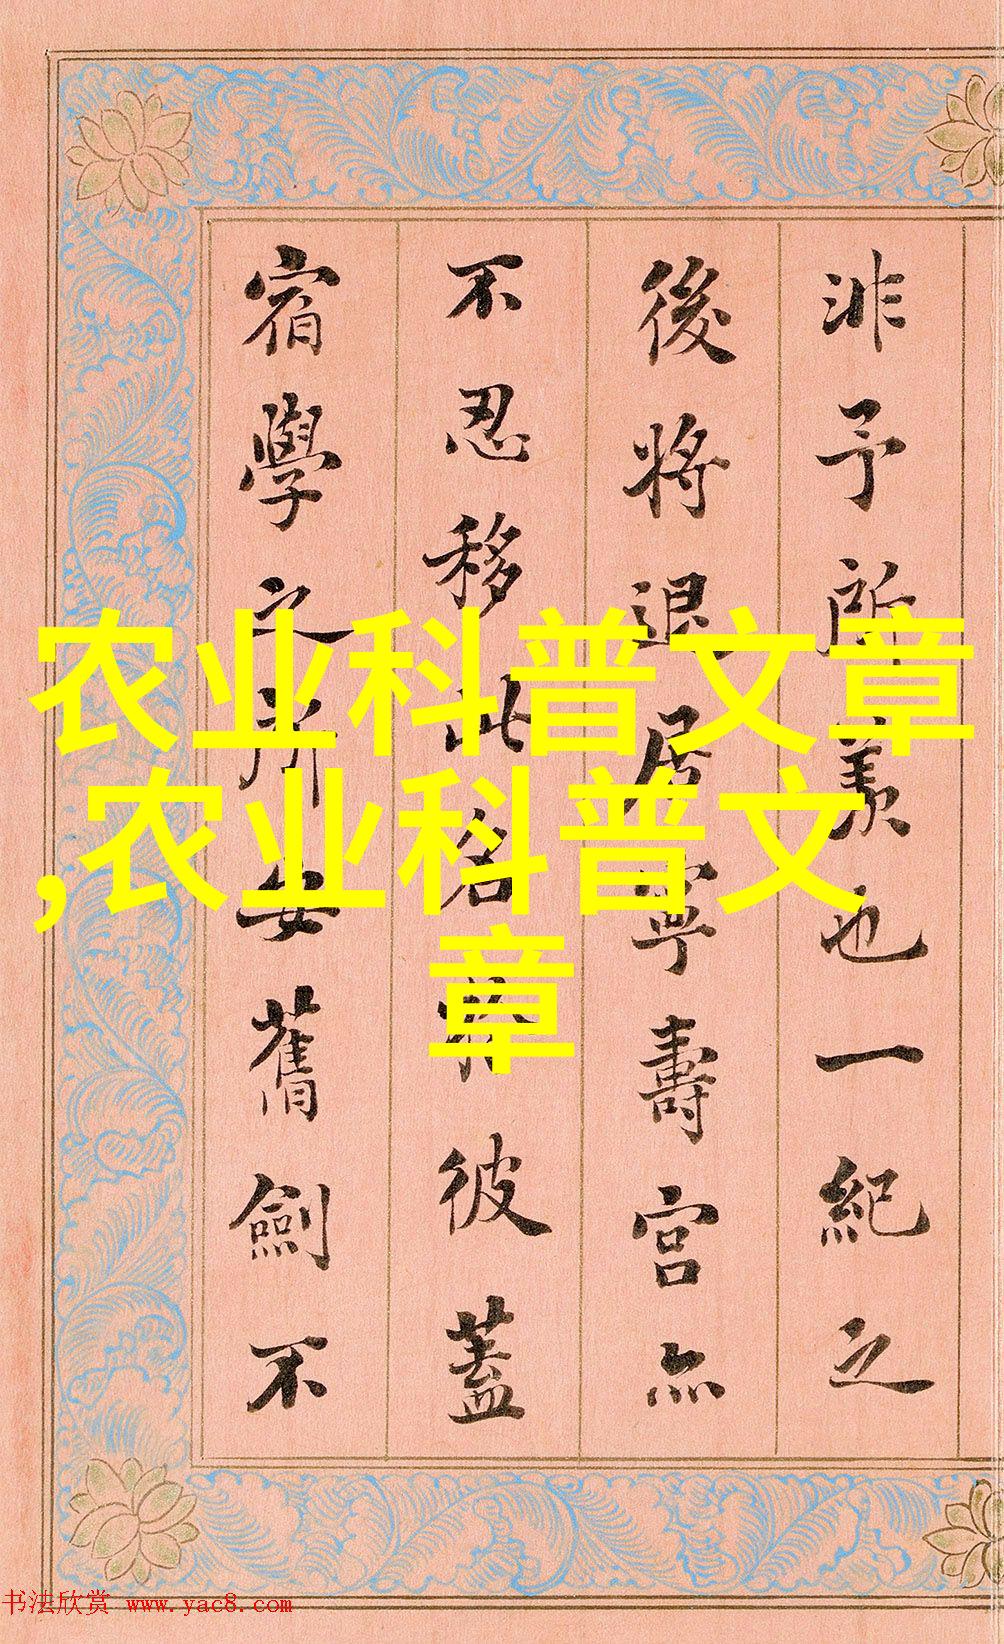 非予所羡也一紀之
後將退居寧壽宮亦
不忍移此名彼蓋
宿學之所安舊劍不
农业科普文章
,农业科普文
章
书法欣赏 www.yac8.com